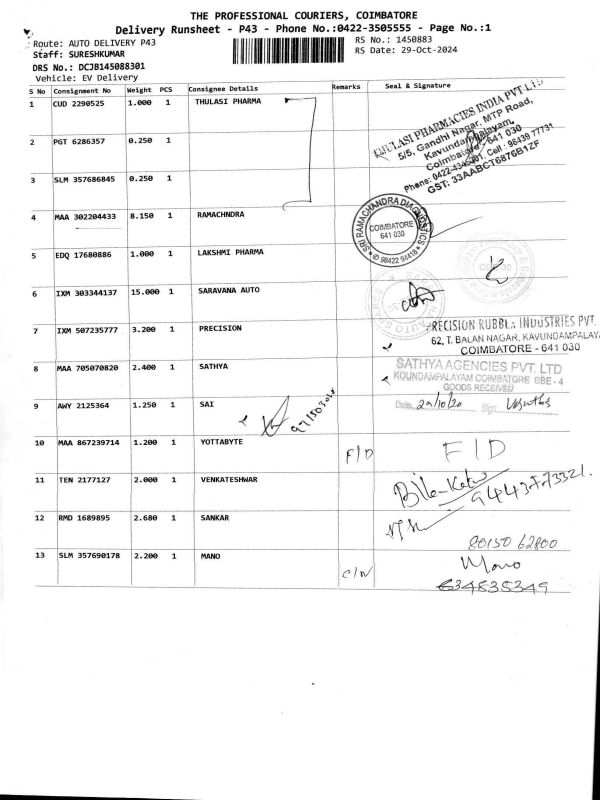 THE PROFESSIONAL COURIERS, COIMBATORE
Delivery Runsheet - P43 - Phone No.:0422-3505555 - Page No.:1
Route: AUTO DELIVERY P43
RS No.: 1450883
Staff: SURESHKUMAR
RS Date: 29-Oct-2024
DRS No.: DCJB145088301
Vehicle: EV Delivery
S No Consignment No Weight PCS Consignee Details Remarks Seal & Signature
1 CUD 2290525 1.000 1 THULASI PHARMA
THULASI PHARMACIES INDIA PVT LTD
5/5, Gandhi Nagar, MTP Road,
Kavundampalayam,
Coimbatore - 641 030
Cell : 96439 77731
GST: 33AABCT6876B1ZF
2 PGT 6286357 0.250 1
3 SLM 357686845 0.250 1
4 MAA 302204433 8.150 1 RAMACHNDRA
SRI RAMACHANDRA DIAGNOSTICS
COIMBATORE
641 030
✆ 98422 94418
5 EDQ 17680886 1.000 1 LAKSHMI PHARMA
6 IXM 303344137 15.000 1 SARAVANA AUTO
7 IXM 507235777 3.200 1 PRECISION
PRECISION RUBBER INDUSTRIES PVT.
62, T. BALAN NAGAR, KAVUNDAMPALAY
COIMBATORE - 641 030
8 MAA 705070820 2.400 1 SATHYA
SATHYA AGENCIES PVT. LTD
KOUNDAMPALAYAM COIMBATORE CBE - 4
GOODS RECEIVED
Date. 29/10/20 Sign.
9 AWY 2125364 1.250 1 SAI
10 MAA 867239714 1.200 1 YOTTABYTE F/D F/D
11 TEN 2177127 2.000 1 VENKATESHWAR
12 RMD 1689895 2.680 1 SANKAR
80150 62800
13 SLM 357690178 2.200 1 MANO
Mano
634835349